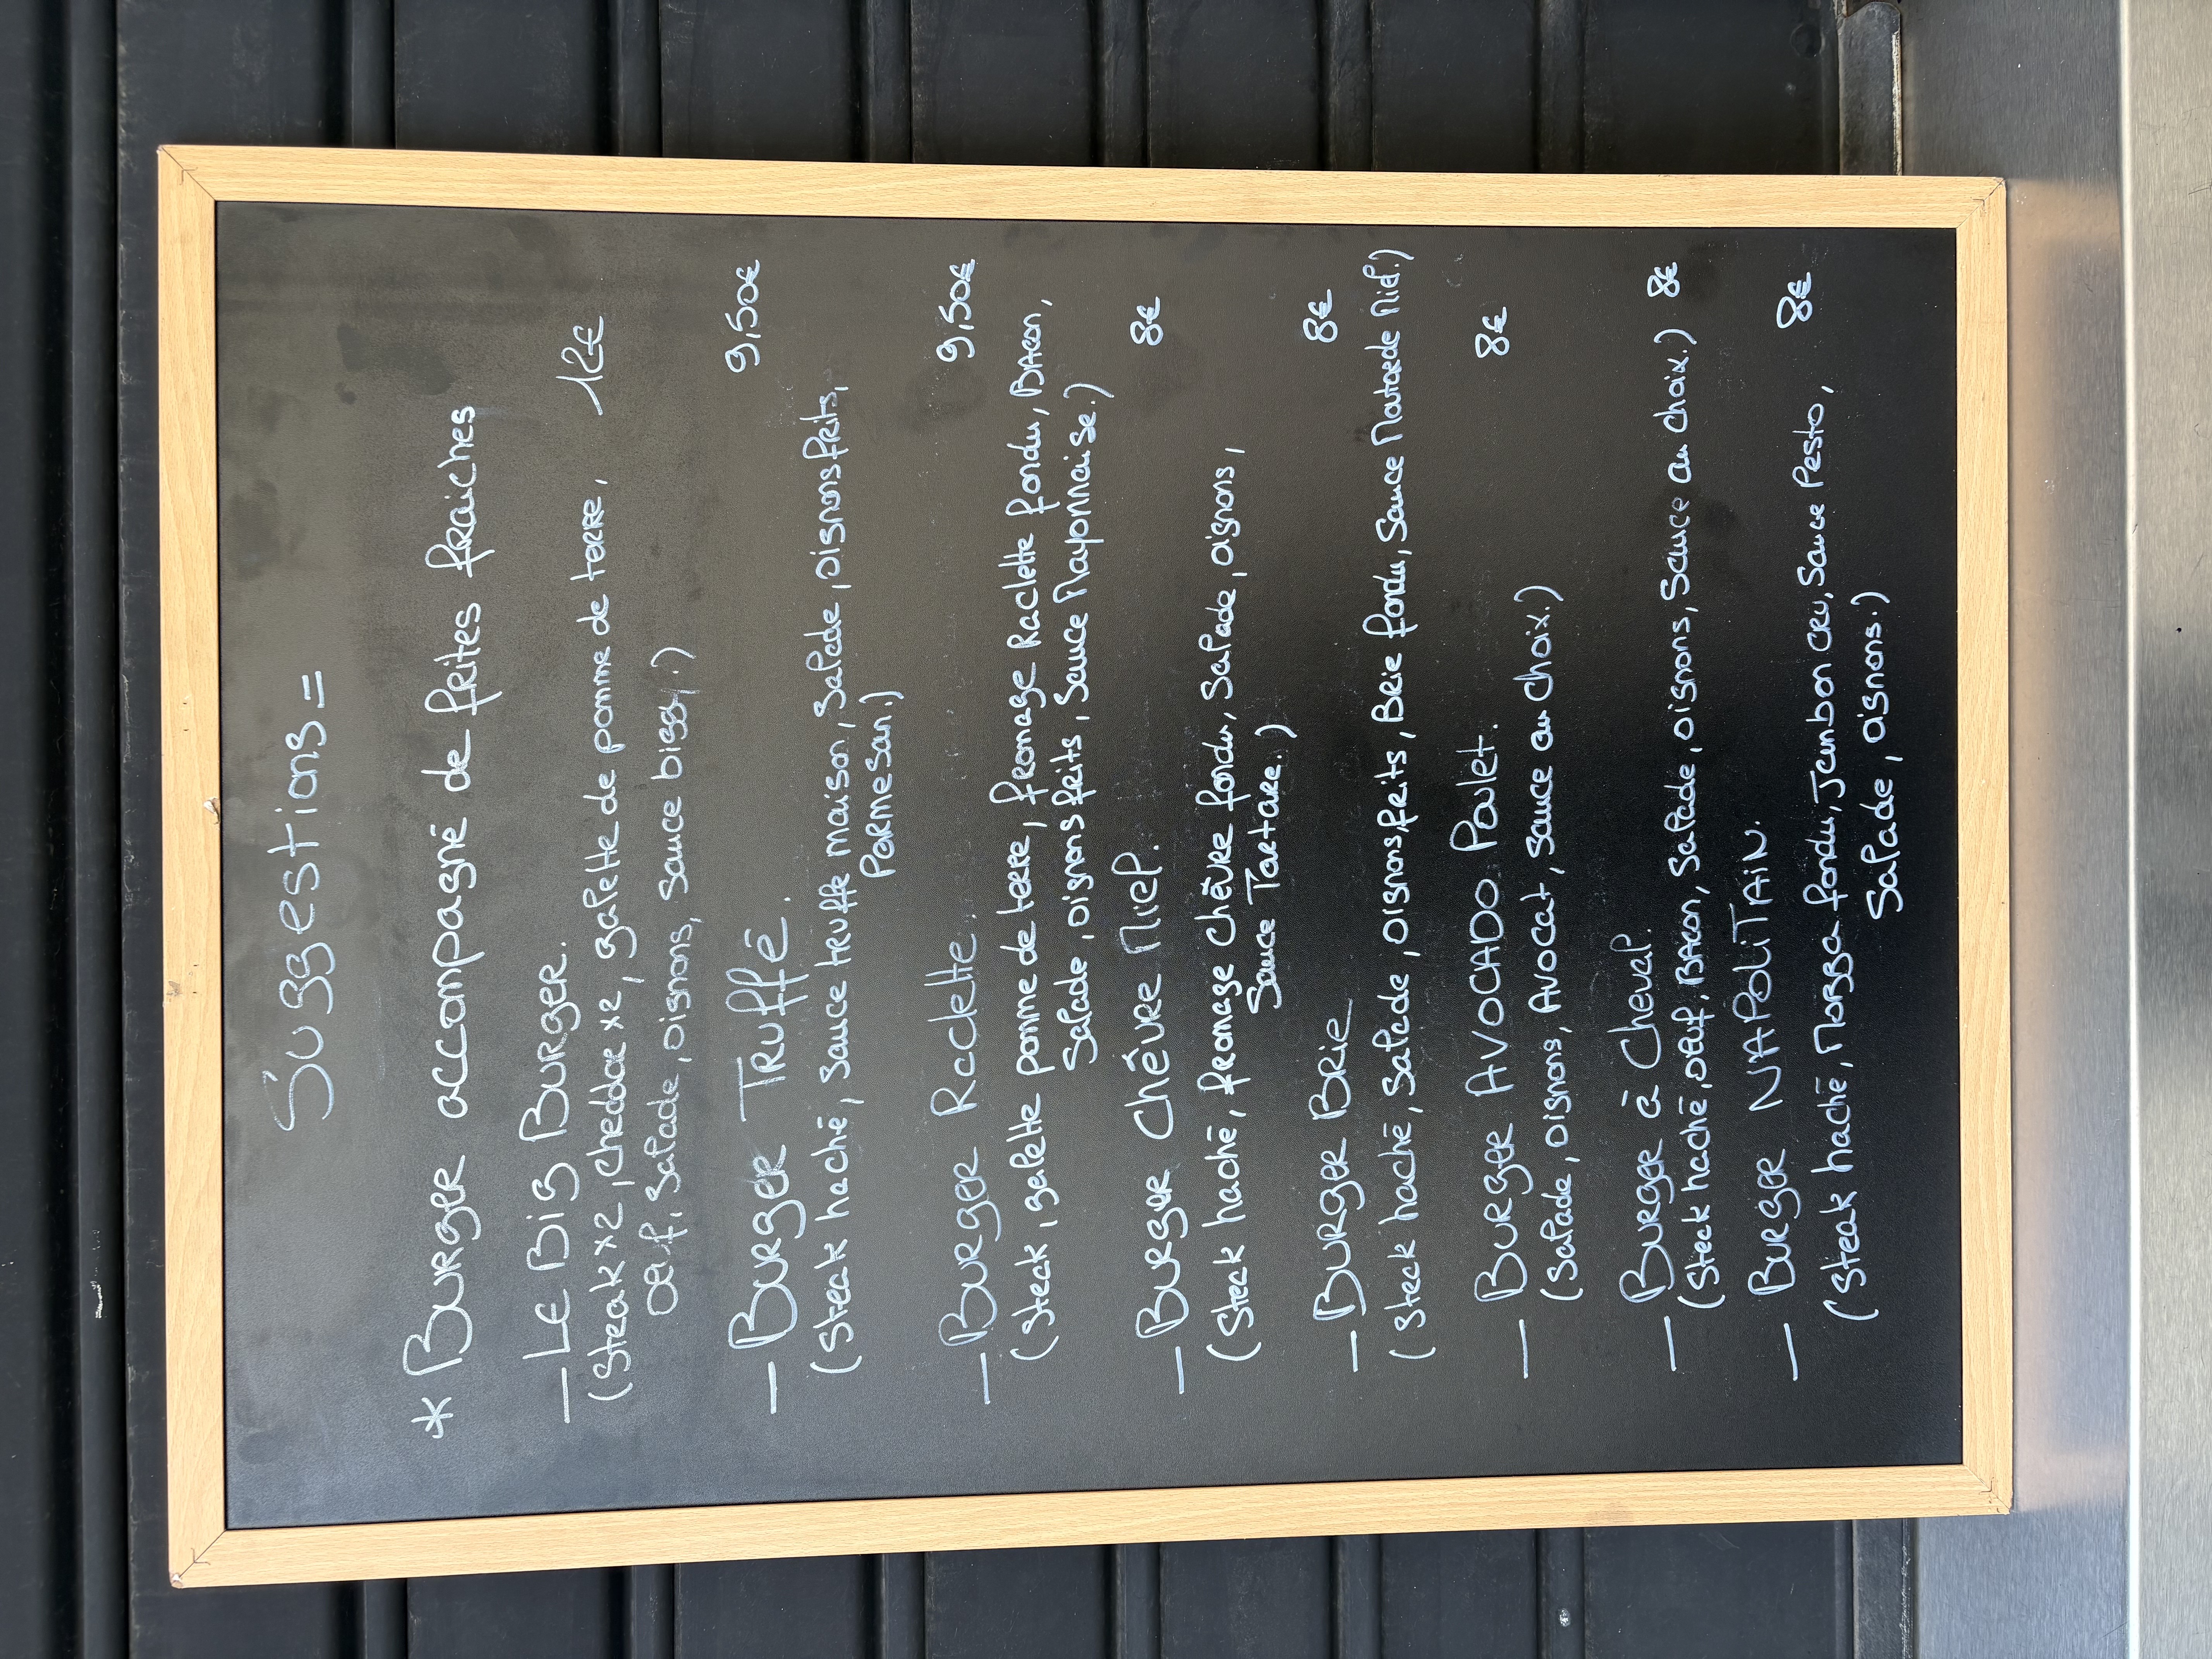 Suggestions =
* Burger accompagné de frites fraiches
— Le Big Burger.
(Steak x2, cheddar x2, galette de pomme de terre, 12€
oeuf, Salade, oignons, sauce biggy.)
— Burger Truffé. 9,50€
(Steak haché, sauce truffe maison, Salade, oignons frits,
Parmesan.)
— Burger Raclette. 9,50€
(Steak, galette pomme de terre, fromage Raclette fondu, Bacon,
Salade, oignons frits, Sauce Mayonnaise.)
— Burger Chèvre Miel. 8€
(Steak haché, fromage chèvre fondu, Salade, oignons,
Sauce Tartare.)
— Burger Brie 8€
(Steak haché, Salade, oignons frits, Brie fondu, Sauce Moutarde Miel.)
— Burger AVOCADO Poulet. 8€
(Salade, oignons, Avocat, sauce au choix.)
— Burger à Cheval.
(Steak haché, oeuf, Bacon, Salade, oignons, Sauce au choix.) 8€
— Burger NAPOLITAIN. 8€
(Steak haché, Mozza fondu, Jambon cru, Sauce Pesto,
Salade, oignons.)